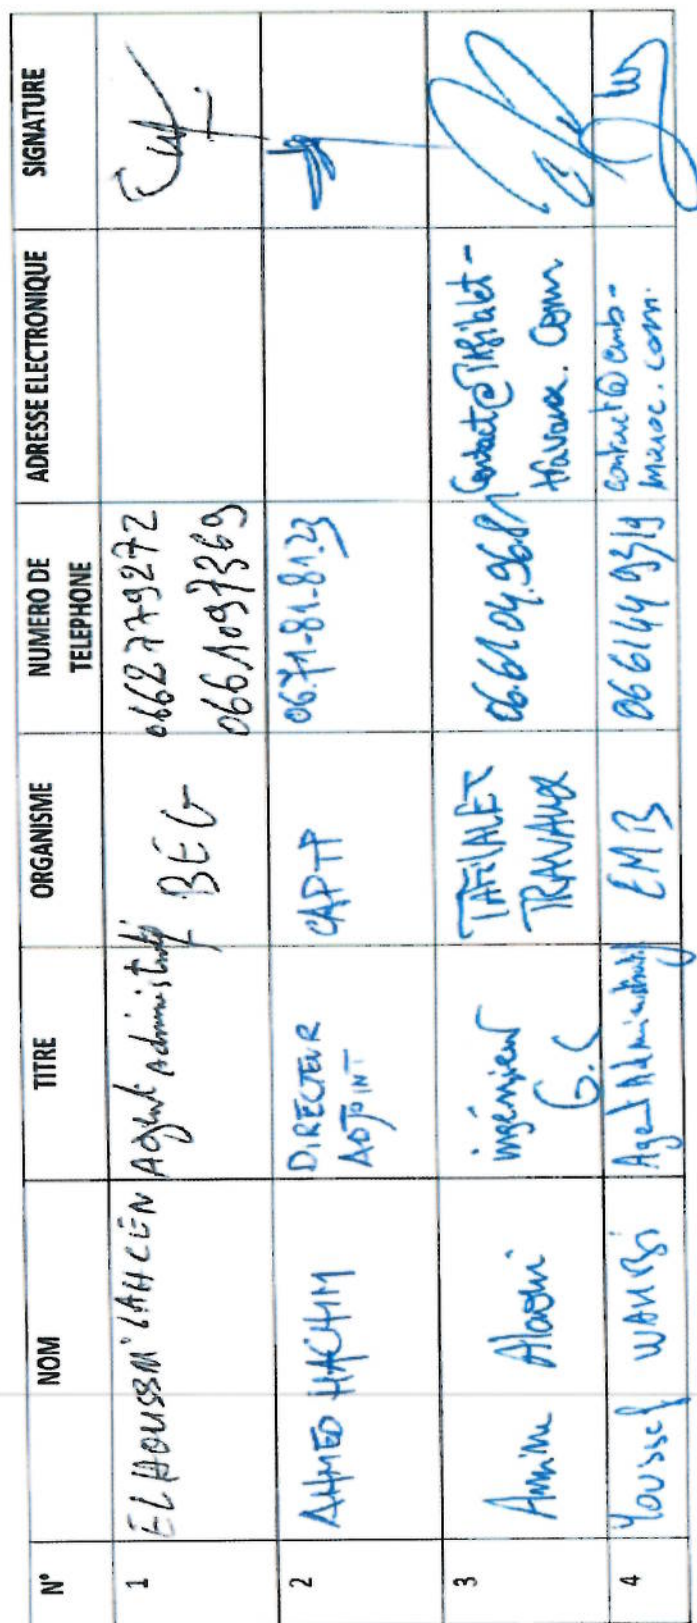 N° NOM TITRE ORGANISME NUMERO DE TELEPHONE ADRESSE ELECTRONIQUE SIGNATURE
1 EL HOUSSAI LAHCEN Agent administratif BEG 0662779272
0661097369
2 AHMED HACHIM DIRECTEUR ADJOINT CAPTP 06.71-81-81.23
3 Amine Alaoui ingénieur G.C TAFILALET TRAVAUX 06.61.04.96.81 Contact@Tafilalet-
travaux.com
4 Youssef WAHBI Agent Administratif EMB 0661449319 contact@emb-
maroc.com.